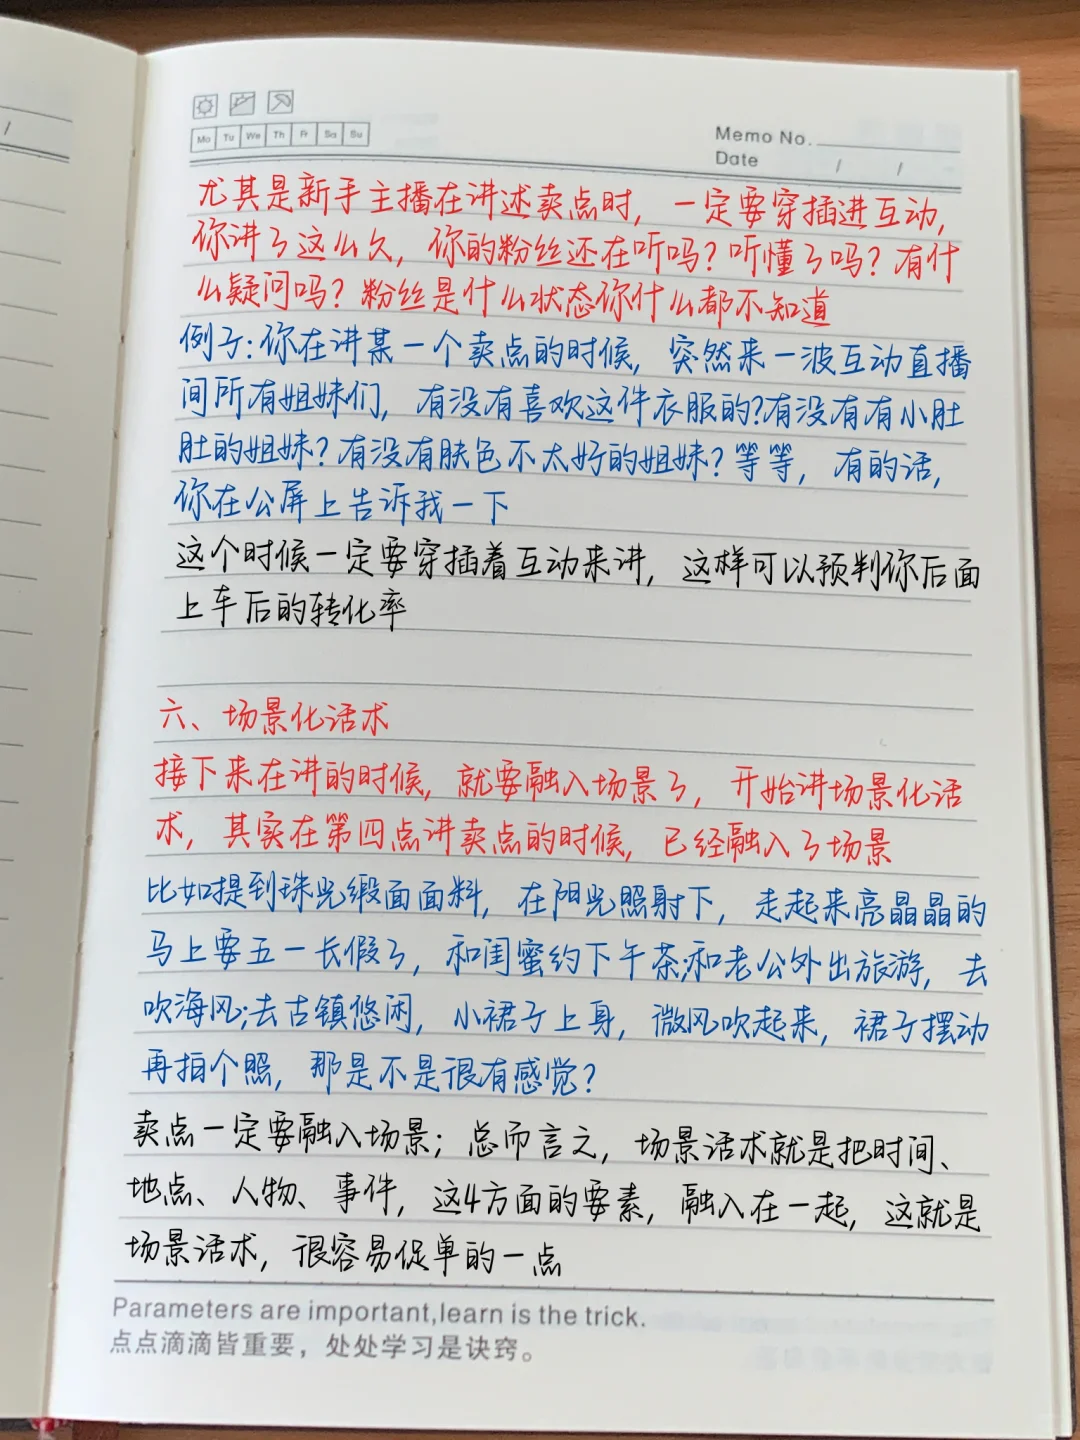 Mo Tu We Th Fr Sa Su
Memo No.
Date / /
尤其是新手主播在讲述卖点时，一定要穿插进互动，
你讲了这么久，你的粉丝还在听吗？听懂了吗？有什
么疑问吗？粉丝是什么状态你什么都不知道
例子：你在讲某一个卖点的时候，突然来一波互动直播
间所有姐妹们，有没有喜欢这件衣服的？有没有有小肚
肚的姐妹？有没有肤色不太好的姐妹？等等，有的话，
你在公屏上告诉我一下
这个时候一定要穿插着互动来讲，这样可以预判你后面
上车后的转化率
六、场景化话术
接下来在讲的时候，就要融入场景了，开始讲场景化话
术，其实在第四点讲卖点的时候，已经融入了场景
比如提到珠光缎面面料，在阳光照射下，走起来亮晶晶的
马上要五一长假了，和闺蜜约下午茶;和老公外出旅游，去
吹海风;去古镇悠闲，小裙子上身，微风吹起来，裙子摆动
再拍个照，那是不是很有感觉？
卖点一定要融入场景；总而言之，场景话术就是把时间、
地点、人物、事件，这4方面的要素，融入在一起，这就是
场景话术，很容易促单的一点
Parameters are important,learn is the trick.
点点滴滴皆重要，处处学习是诀窍。
/